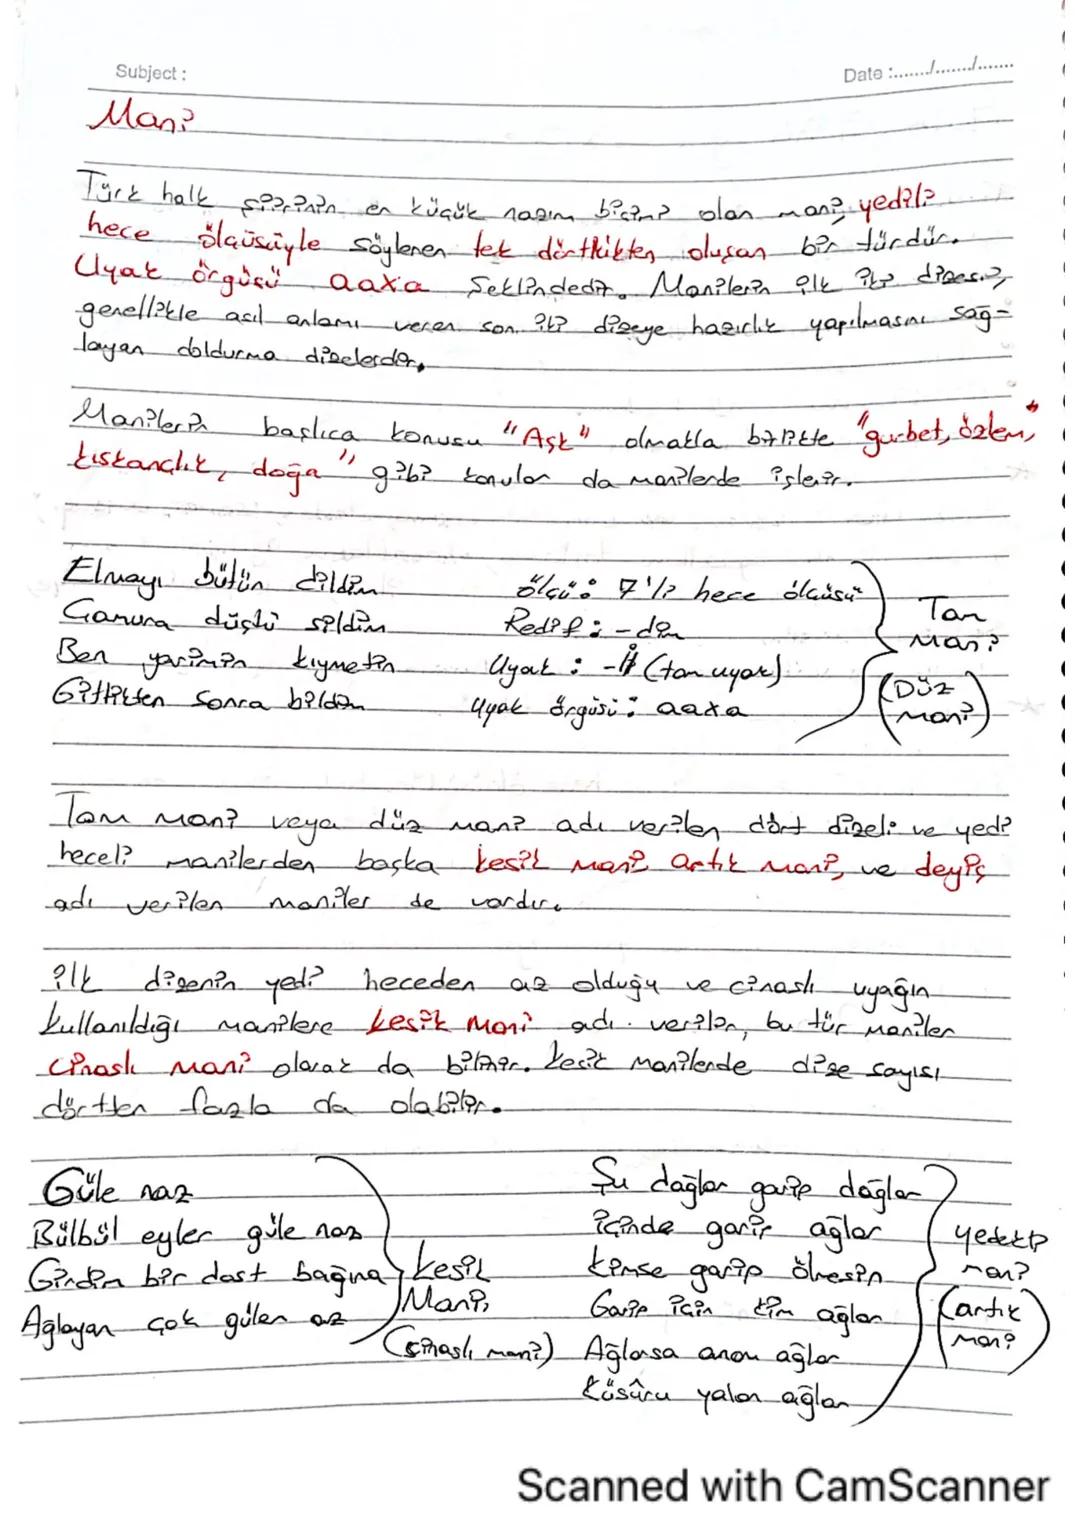 Subject :
Date :......./......./.......
Mani
Türk halk şiirinin en küçük nazım biçimi olan mani, yedili
hece ölçüsüyle söylenen tek dörtlükten oluşan bir türdür.
Uyak örgüsü aaxa Şeklindedir. Manilerin ilk iki dizesi,
genellikle asıl anlamı veren son iki dizeye hazırlık yapılmasını sağ-
layan doldurma dizelerdir.
Manilerin başlıca konusu "Aşk" olmakla birlikte "gurbet, özlem,
kıskançlık, doğa" gibi konular da manilerde işlenir.
Elmayı bütün dildim
Ölçü: 7'li hece ölçüsü
Tam
Mani
(Düz
mani)
Camura düştü sildim
Redif: -dim
Ben yarimin kıymetin
Uyak: -il (tam uyak)
Gittikten sonra bildim
Uyak örgüsü: aaxa
Tam mani veya düz mani adı verilen dört dizeli ve yedi
heceli manilerden başka kesik mani artık mani, ve deyiş
adı verilen maniler de vardır.
ilk dizenin yedi heceden az olduğu ve cinaslı uyağın
kullanıldığı manilere kesik mani adı verilir, bu tür maniler
cinaslı mani olarak da bilinir. Kesik manilerde dize sayısı
dörtten fazla da olabilir.
Güle naz
Bülbül eyler güle naz
Girdim bir dost bağına
Ağlayan çok gülen az
Kesik
Mani,
(cinaslı mani)
Şu dağlar garip dağlar
içinde garip ağlar
kimse garip ölmesin
Garip için kim ağlar
Ağlarsa anam ağlar
Küsûru yalan ağlar
yedekli
mani
(artık
mani)
Scanned with CamScanner